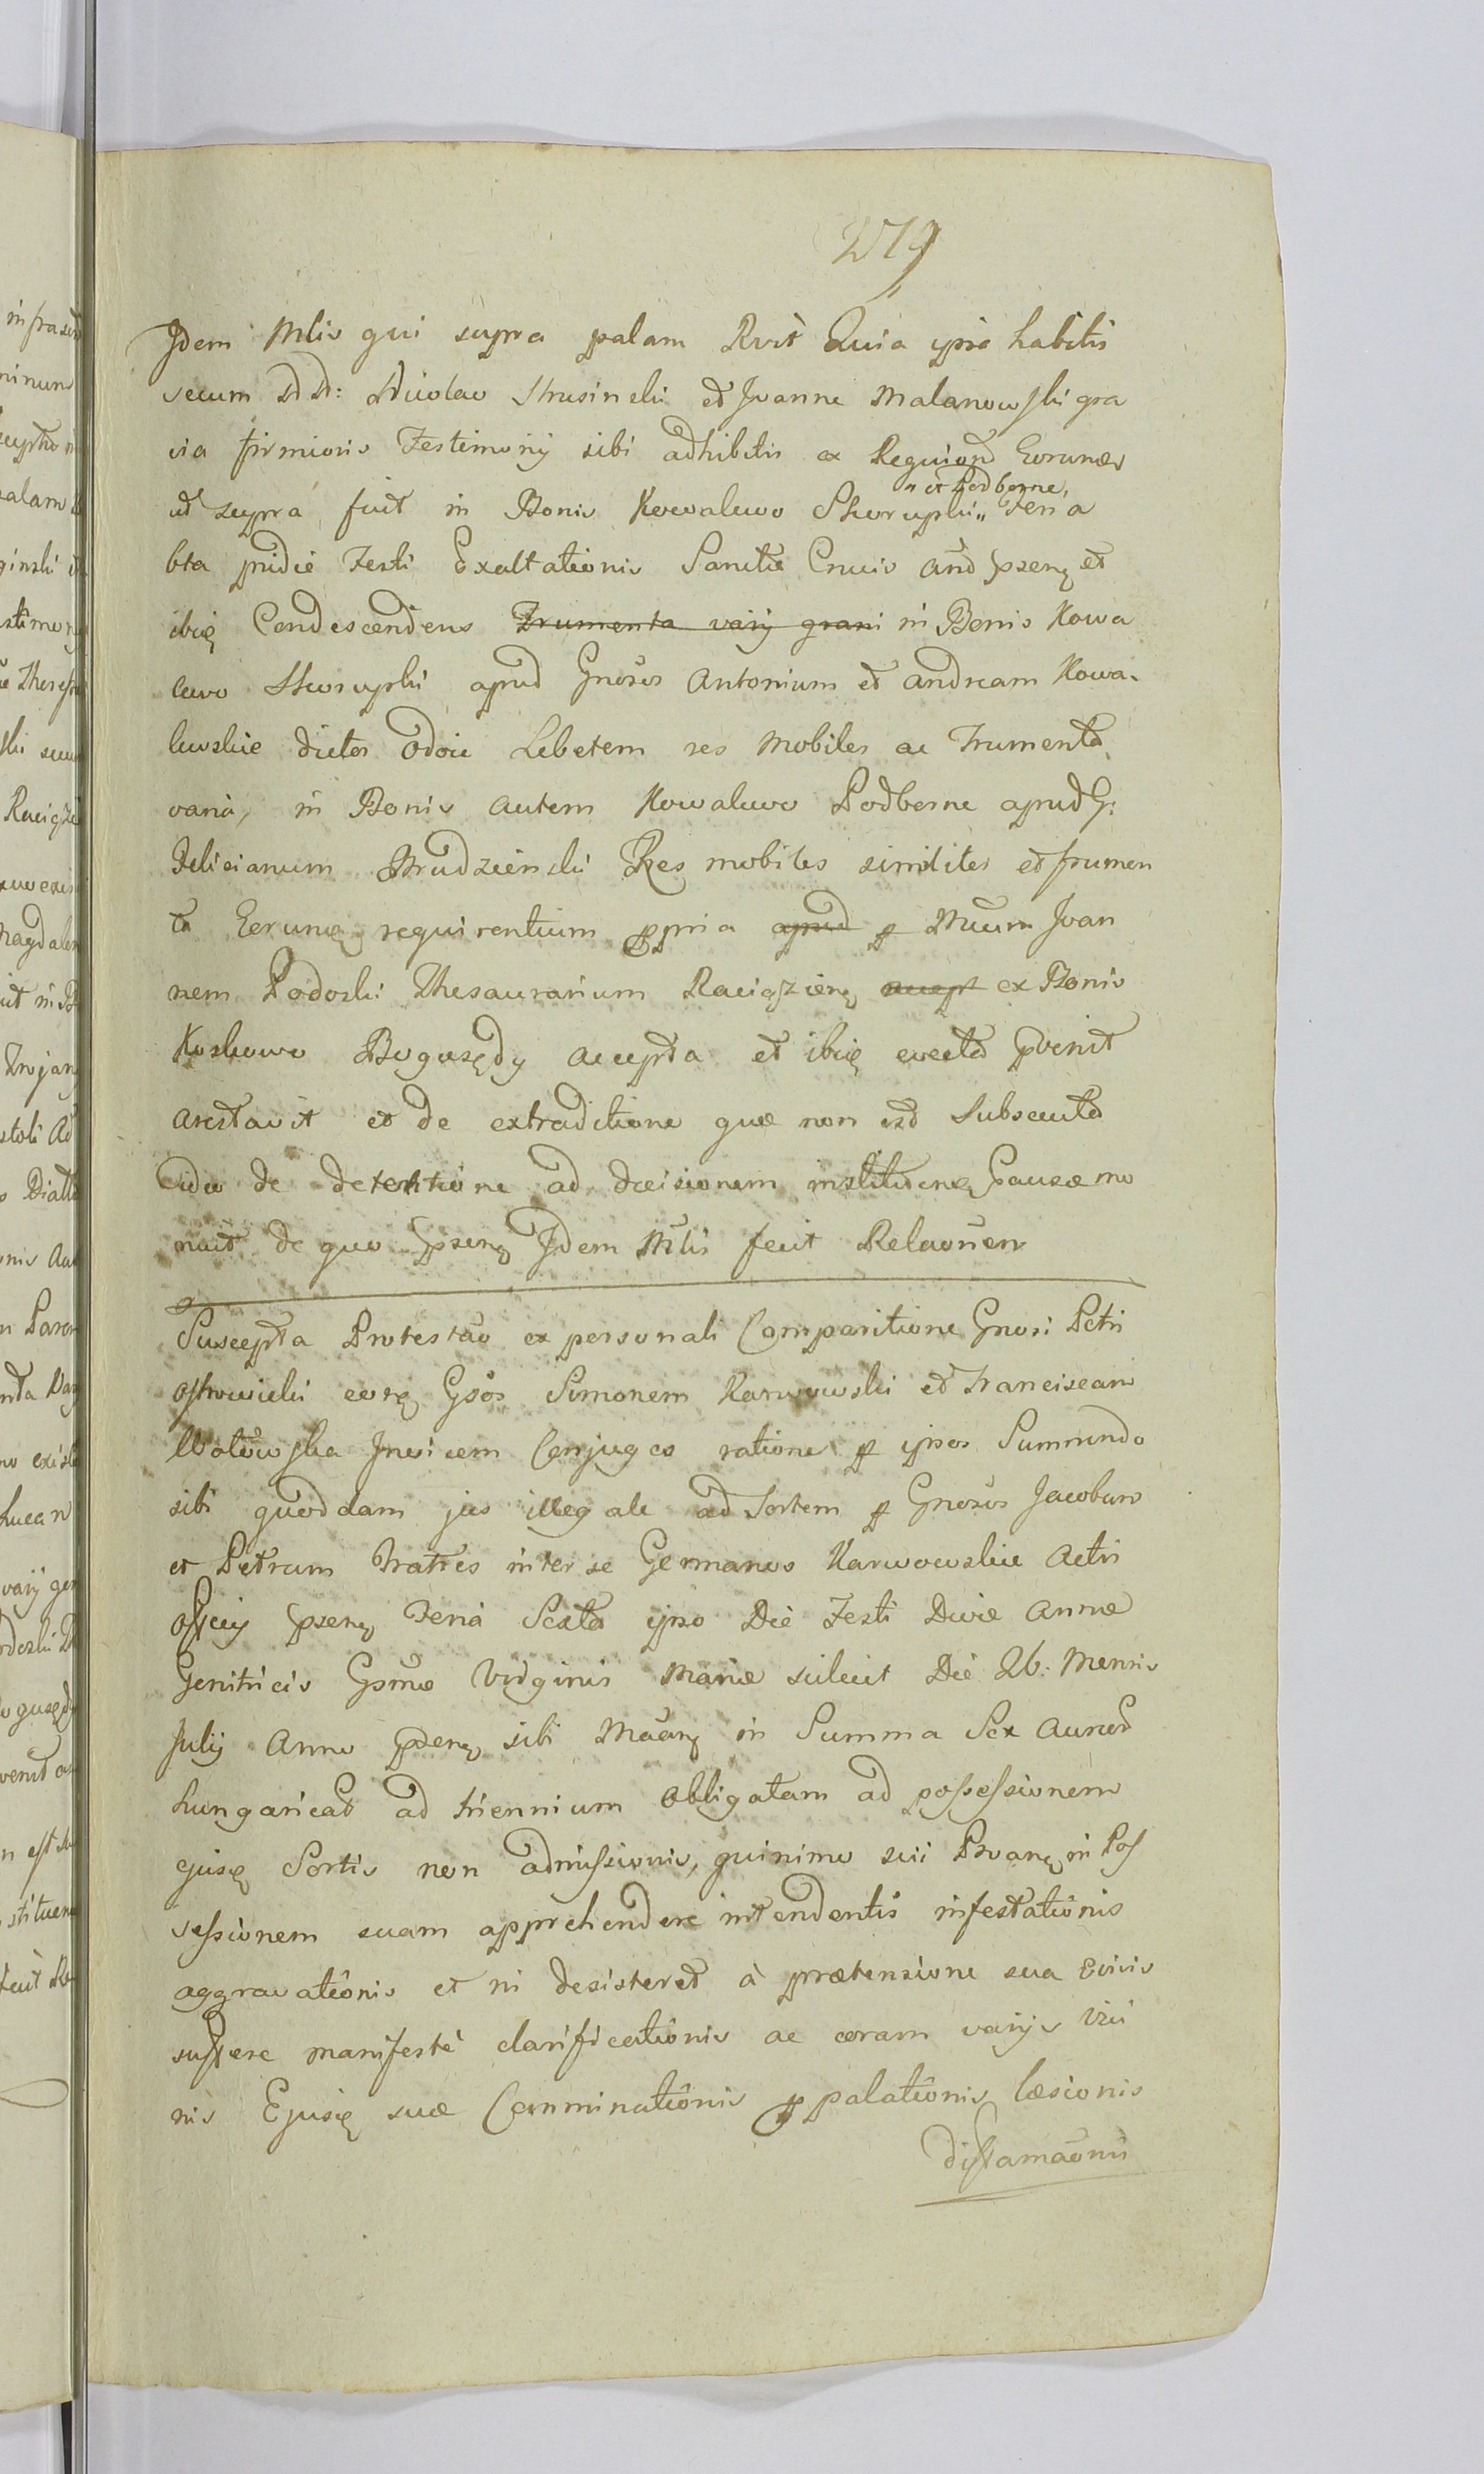 279
Jdem Mlis qui supra palam Rvit Quia ipse habitis
secum DD: Nicolao Strusinski et Joanne Malanowski gra
via firmioris Testimonij sibi adhibitis ex Requiond Eorund
ut supra fuit in Bonis Kowalewo Skorupki „ Feria
„ et Podborne„
bta pridie Festi Exaltationis Sanctæ Crucis And pzenq et
ibiq Condescendens Frumenta varij grani in Bonis Kowa
lewo Skorupki apud Gnosos Antonium et Andream Kowa-
lewskie dictos Lebetem res mobiles ac Frumenta
varia, in Bonis autem Kowalewo Podborne apud G:
Felicianum Brudzinski Res mobiles similiter et frumen
ta Eorunq requirentium ppria apud p Mcum Joan
nem Podoski Thesaurarium Raciążenq accept ex Bonis
Koskowo Bogusędy accepta et ibiq evecta pvenit
arestavit et de extraditione quæ non est Subsecuta
ideo de detentione ad decisionem instituenq Causæ mo
nuit de quo pzenq Jdem Mlis fecit Relaōnen
Suscepta Protestao ex personali Comparitione Gnosi Petri
Ostrowicki corq Gsos Simonem Karwowski et Franciscam
Wotowska Jnvicem Conjuges ratione p ipsos Summendo
sibi quoddam jus illegale ad Sortem p Gnosos Jacobum
et Petrum Fratres inter se Germanos Karwowskie Actis
Officij pzenq Feria Sexta ipso Die Festi Divæ Annæ
Genitricis Gsmæ Virginis Mariæ scilicet Die 26: Mensis
Julij Anno pzenq sibi in Summa Sex Aureor
hungarical ad triennium Obligatam ad possessionem
ejusq Sortis non admissionis, quinimo sui in Pos
sessionem suam apprehendere intendentis infestationis
aggravationis et ni desisteret à prætensione sua
manifestè clarificationis ac coram varijs
nis Ejusq suæ Comminationis ppalationis læsionis
diffamaōnis